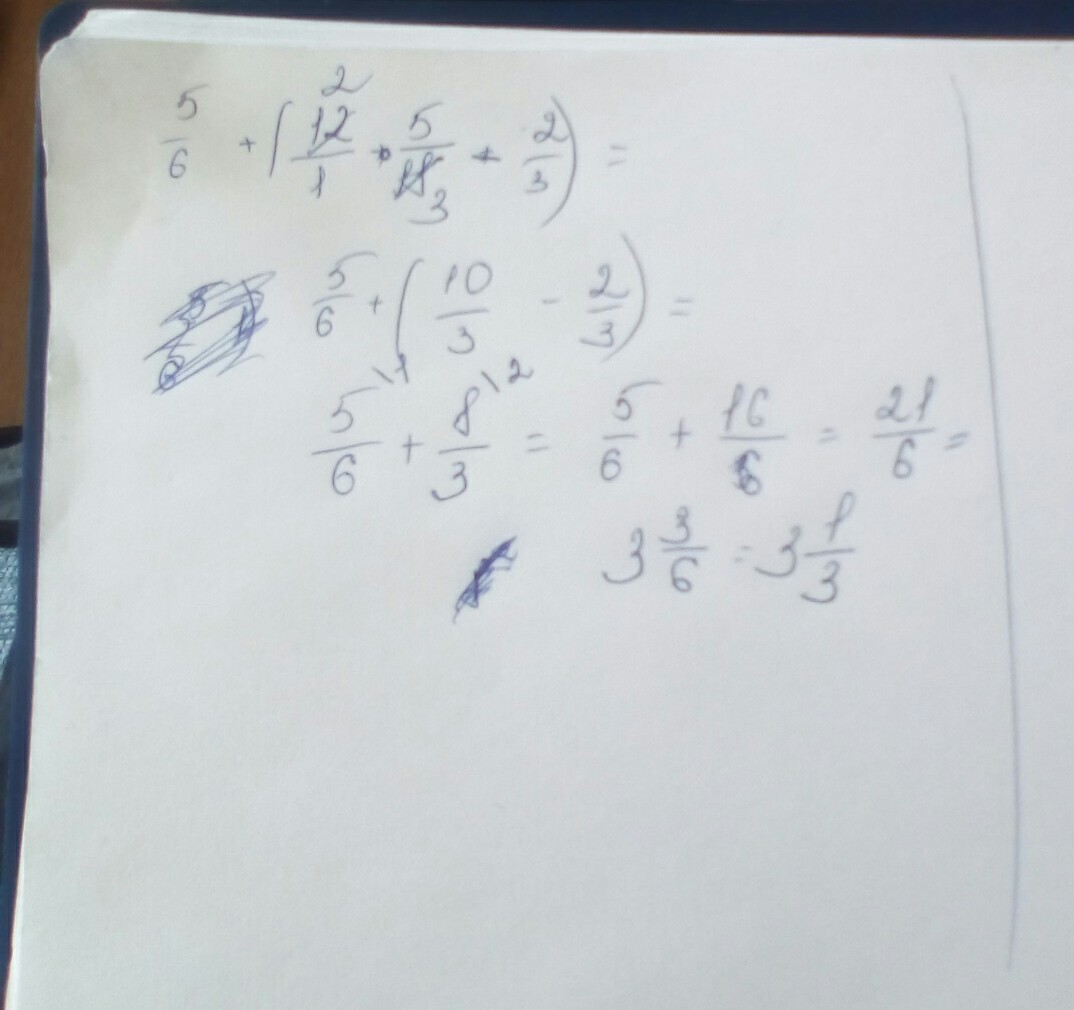 5/6 + (12/1 · 5/18 - 2/3) =
2 3
5/6 + (10/3 - 2/3) =
5/6 \1 + 8/3 \2 = 5/6 + 16/6 = 21/6 =
3 3/6 = 3 1/3